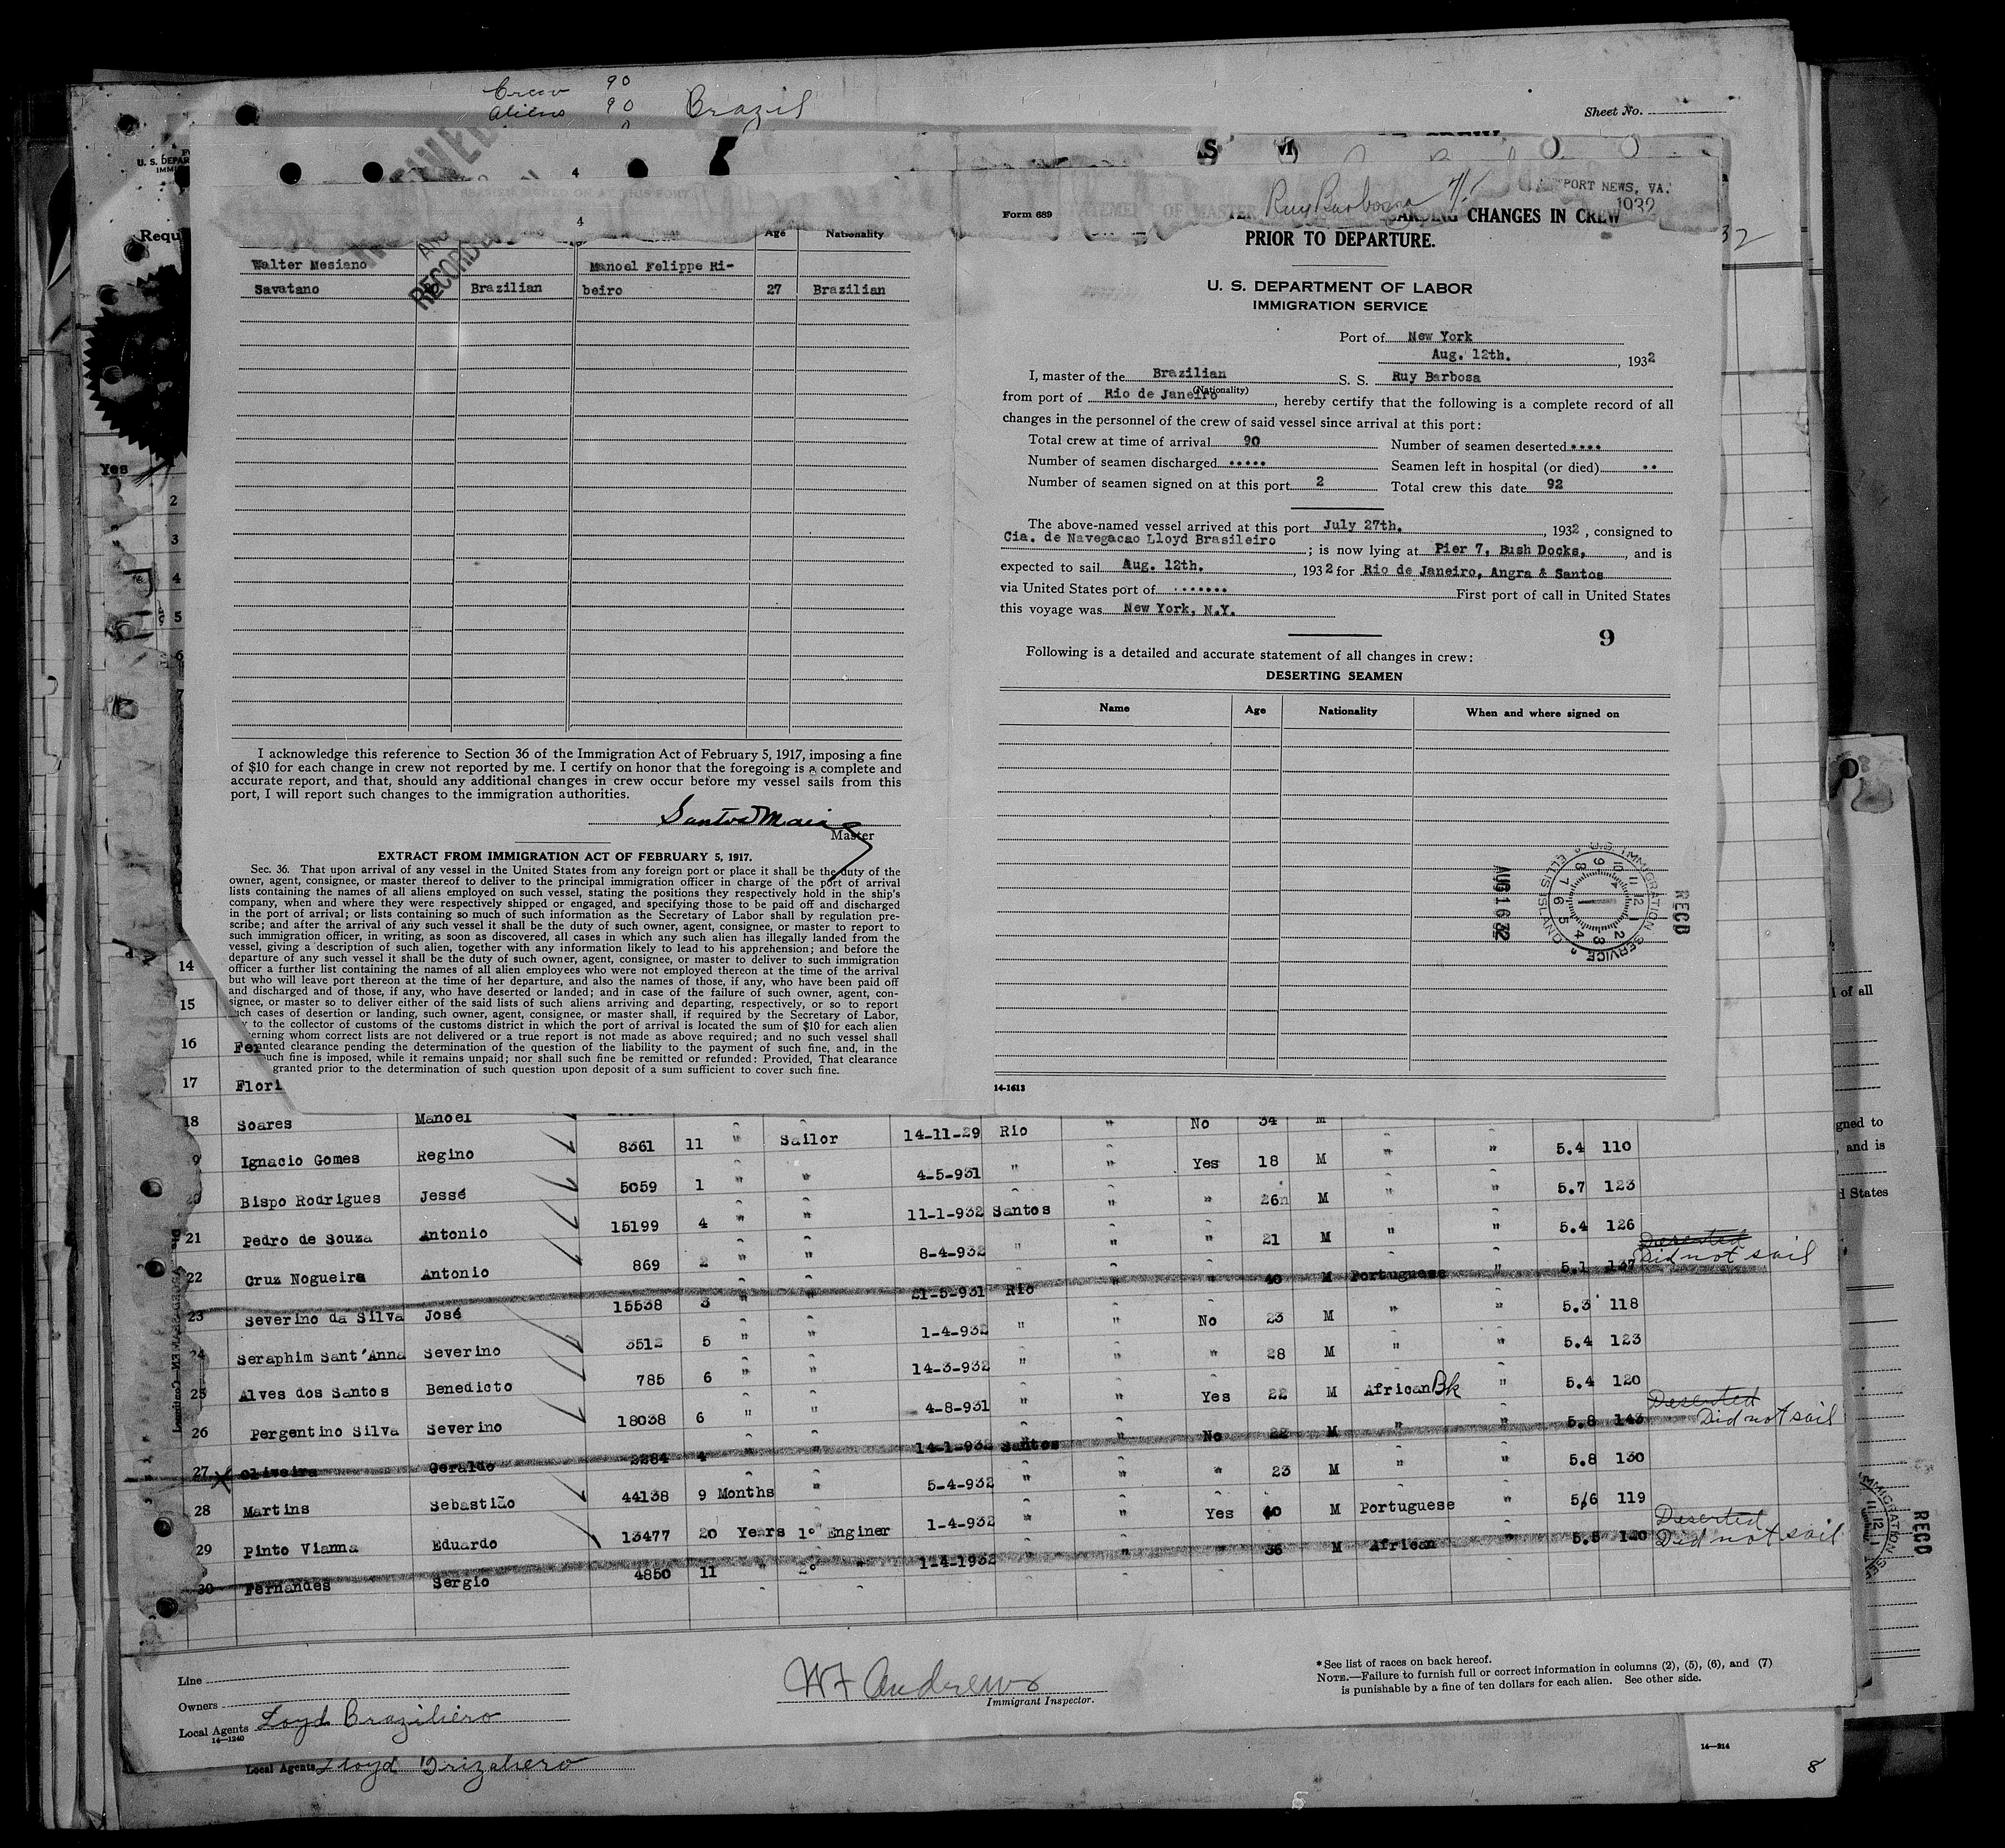 Crew 90
Aliens 90 Brazil
Sheet No.
U. S. DEPAR
IMMI
Requ
Yes
4
4
Age Nationality
Walter Mesiano Manoel Felippe Ri-
Savatano Brazilian beiro 27 Brazilian
RECORD
I acknowledge this reference to Section 36 of the Immigration Act of February 5, 1917, imposing a fine
of $10 for each change in crew not reported by me. I certify on honor that the foregoing is a complete and
accurate report, and that, should any additional changes in crew occur before my vessel sails from this
port, I will report such changes to the immigration authorities.
Santos Maia
Master
EXTRACT FROM IMMIGRATION ACT OF FEBRUARY 5, 1917.
Sec. 36. That upon arrival of any vessel in the United States from any foreign port or place it shall be the duty of the
owner, agent, consignee, or master thereof to deliver to the principal immigration officer in charge of the port of arrival
lists containing the names of all aliens employed on such vessel, stating the positions they respectively hold in the ship's
company, when and where they were respectively shipped or engaged, and specifying those to be paid off and discharged
in the port of arrival; or lists containing so much of such information as the Secretary of Labor shall by regulation pre-
scribe; and after the arrival of any such vessel it shall be the duty of such owner, agent, consignee, or master to report to
such immigration officer, in writing, as soon as discovered, all cases in which any such alien has illegally landed from the
vessel, giving a description of such alien, together with any information likely to lead to his apprehension; and before the
departure of any such vessel it shall be the duty of such owner, agent, consignee, or master to deliver to such immigration
officer a further list containing the names of all alien employees who were not employed thereon at the time of the arrival
but who will leave port thereon at the time of her departure, and also the names of those, if any, who have been paid off
and discharged and of those, if any, who have deserted or landed; and in case of the failure of such owner, agent, con-
signee, or master so to deliver either of the said lists of such aliens arriving and departing, respectively, or so to report
such cases of desertion or landing, such owner, agent, consignee, or master shall, if required by the Secretary of Labor,
y to the collector of customs of the customs district in which the port of arrival is located the sum of $10 for each alien
erning whom correct lists are not delivered or a true report is not made as above required; and no such vessel shall
anted clearance pending the determination of the question of the liability to the payment of such fine, and, in the
uch fine is imposed, while it remains unpaid; nor shall such fine be remitted or refunded: Provided, That clearance
granted prior to the determination of such question upon deposit of a sum sufficient to cover such fine.
Form 689
Ruy Barbosa
PORT NEWS, VA.
1932
CHANGES IN CREW
PRIOR TO DEPARTURE.
U. S. DEPARTMENT OF LABOR
IMMIGRATION SERVICE
Port of New York
Aug. 12th. , 1932
I, master of the Brazilian S. S. Ruy Barbosa
(Nationality)
from port of Rio de Janeiro , hereby certify that the following is a complete record of all
changes in the personnel of the crew of said vessel since arrival at this port:
Total crew at time of arrival 90 Number of seamen deserted ....
Number of seamen discharged ..... Seamen left in hospital (or died) ..
Number of seamen signed on at this port 2 Total crew this date 92
The above-named vessel arrived at this port July 27th. , 1932 , consigned to
Cia. de Navegacao Lloyd Brasileiro ; is now lying at Pier 7, Bush Docks, , and is
expected to sail Aug. 12th. , 1932 for Rio de Janeiro, Angra & Santos
via United States port of ....... First port of call in United States
this voyage was New York, N.Y.
9
Following is a detailed and accurate statement of all changes in crew:
DESERTING SEAMEN
Name Age Nationality When and where signed on
AUG 16 32
U.S. IMMIGRATION SERVICE ELLIS ISLAND
RECD
14-1613
2
3
4
5
6
7
14
15
16 Fer
17 Flori
18 Soares Manoel No 34 M
Ignacio Gomes Regino 8361 11 " Sailor 14-11-29 Rio " Yes 18 M " " 5.4 110
Bispo Rodrigues Jessé 5059 1 " " 4-5-931 " " " 26 M " " 5.7 123
21 Pedro de Souza Antonio 15199 4 " " 11-1-932 Santos " " 21 M " " 5.4 126
22 Cruz Nogueira Antonio 869 2 " " 8-4-932 " " " 40 M Portuguese " 5.1 137 Deserted Did not sail
23 Severino da Silva José 15538 3 " " 21-5-931 Rio " No 23 M " " 5.3 118
24 Seraphim Sant'Anna Severino 3512 5 " " 1-4-932 " " " 28 M " " 5.4 123
25 Alves dos Santos Benedicto 785 6 " " 14-3-932 " " Yes 22 M African Bk " 5.4 120
26 Pergentino Silva Severino 18038 6 " " 4-8-931 " " No 22 M " " 5.8 143 Deserted Did not sail
27 Oliveira Geraldo 2284 4 " " 14-1-932 Santos " " 23 M " " 5.8 130
28 Martins Sebastião 44138 9 Months " 5-4-932 " " Yes 40 M Portuguese " 5/6 119
29 Pinto Vianna Eduardo 13477 20 Years 1º Enginer 1-4-932 " " " 36 M African " 5.5 140 Deserted Did not sail
30 Fernandes Sergio 4850 11 " 2º " 1-4-1932
Line
Owners
Local Agents Loyd Braziliero
14-1240
W F Andrews
Immigrant Inspector.
*See list of races on back hereof.
NOTE.—Failure to furnish full or correct information in columns (2), (5), (6), and (7)
is punishable by a fine of ten dollars for each alien. See other side.
Local Agents Lloyd Brizaliero
14-814
8
32
l of all
gned to
, and is
d States
RECD